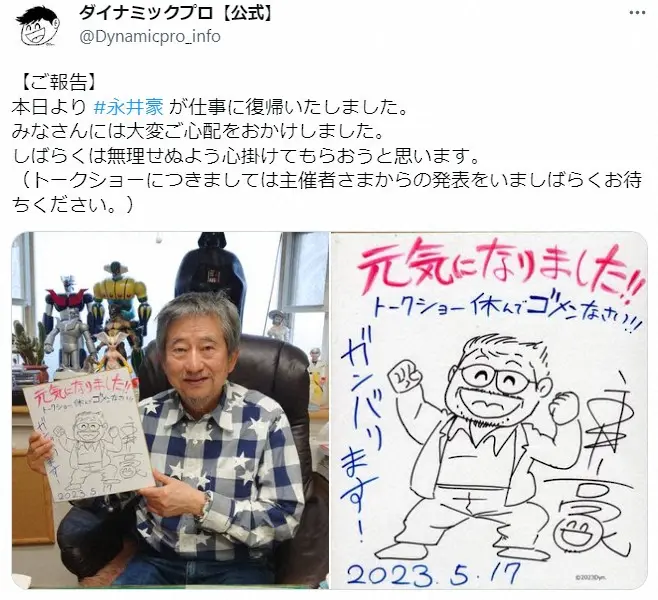 ダイナミックプロ【公式】
@Dynamicpro_info
【ご報告】
本日より #永井豪 が仕事に復帰いたしました。
みなさんには大変ご心配をおかけしました。
しばらくは無理せぬよう心掛けてもらおうと思います。
（トークショーにつきましては主催者さまからの発表をいましばらくお待
ちください。）
元気になりました!!
トークショー休んでゴメンなさい!!
ガンバリます!
2023.5.17
元気になりました!!
トークショー休んでゴメンなさい!!
ガンバリます!
永井豪
2023.5.17
©2023Dyn.